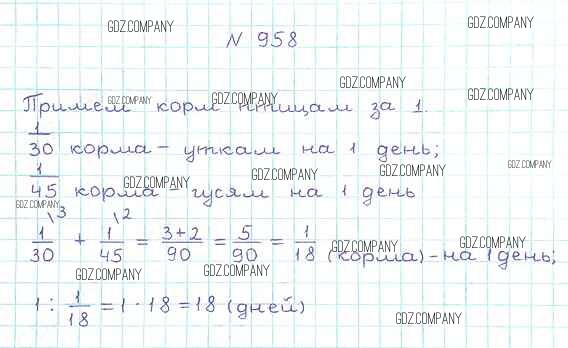 GDZ.COMPANY GDZ.COMPANY
N 958
GDZ.COMPANY GDZ.COMPANY
Примем корм птицам за 1.
GDZ.COMPANY GDZ.COMPANY
1/30 корма - уткам на 1 день;
GDZ.COMPANY GDZ.COMPANY GDZ.COMPANY GDZ.COMPANY
1/45 корма - гусям на 1 день
GDZ.COMPANY
1/30 \3 + 1/45 \2 = 3+2/90 = 5/90 = 1/18 (корма) - на 1 день;
GDZ.COMPANY GDZ.COMPANY
GDZ.COMPANY GDZ.COMPANY
1 : 1/18 = 1 · 18 = 18 (дней)
GDZ.COMPANY